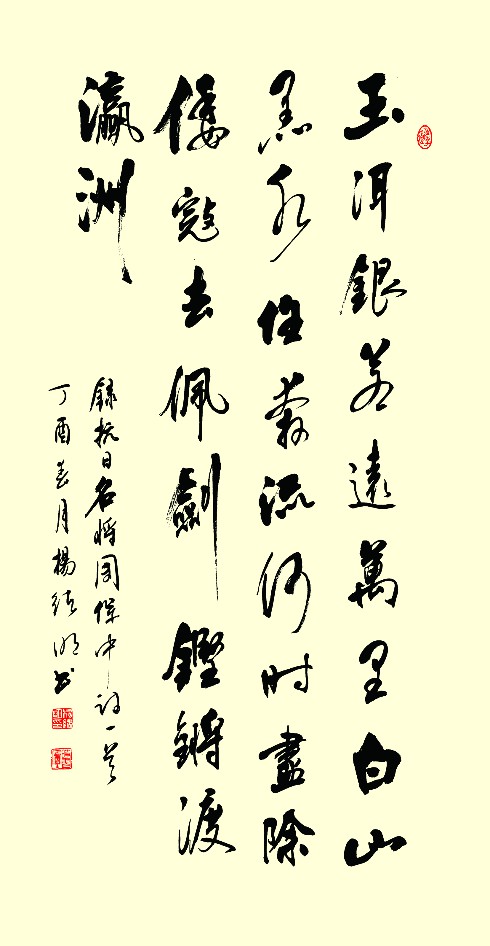 玉洱銀蒼遠萬里白山
黑水任奔流何时盡除
倭寇去佩劍鏗鏘渡
瀛洲
錄抗日名將周保中詩一首
丁酉春月楊明書